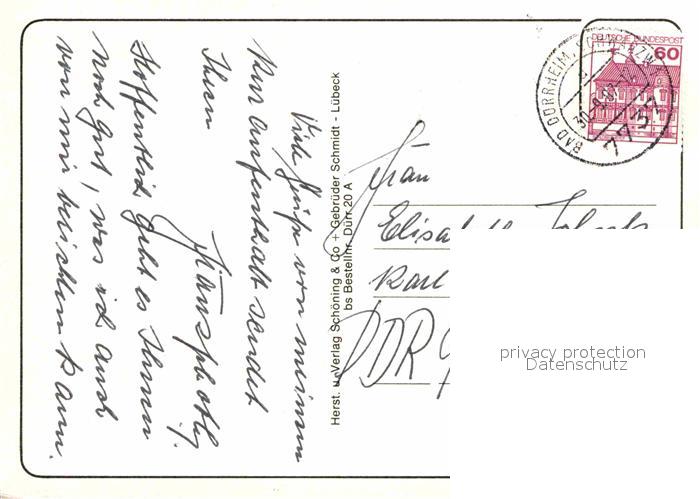 Viele Grüße von meinem
Kuraufenthalt sendet
Ihnen
Hoffentlich geht es Ihnen
noch gut, was ich auch
von mir berichten kann.
Herst. u. Verlag Schöning & Co + Gebrüder Schmidt - Lübeck
bs Bestellnr. Dürr. 20 A
DEUTSCHE BUNDESPOST
60
BAD DÜRRHEIM
7737
Frau
Karl
DDR
privacy protection
Datenschutz